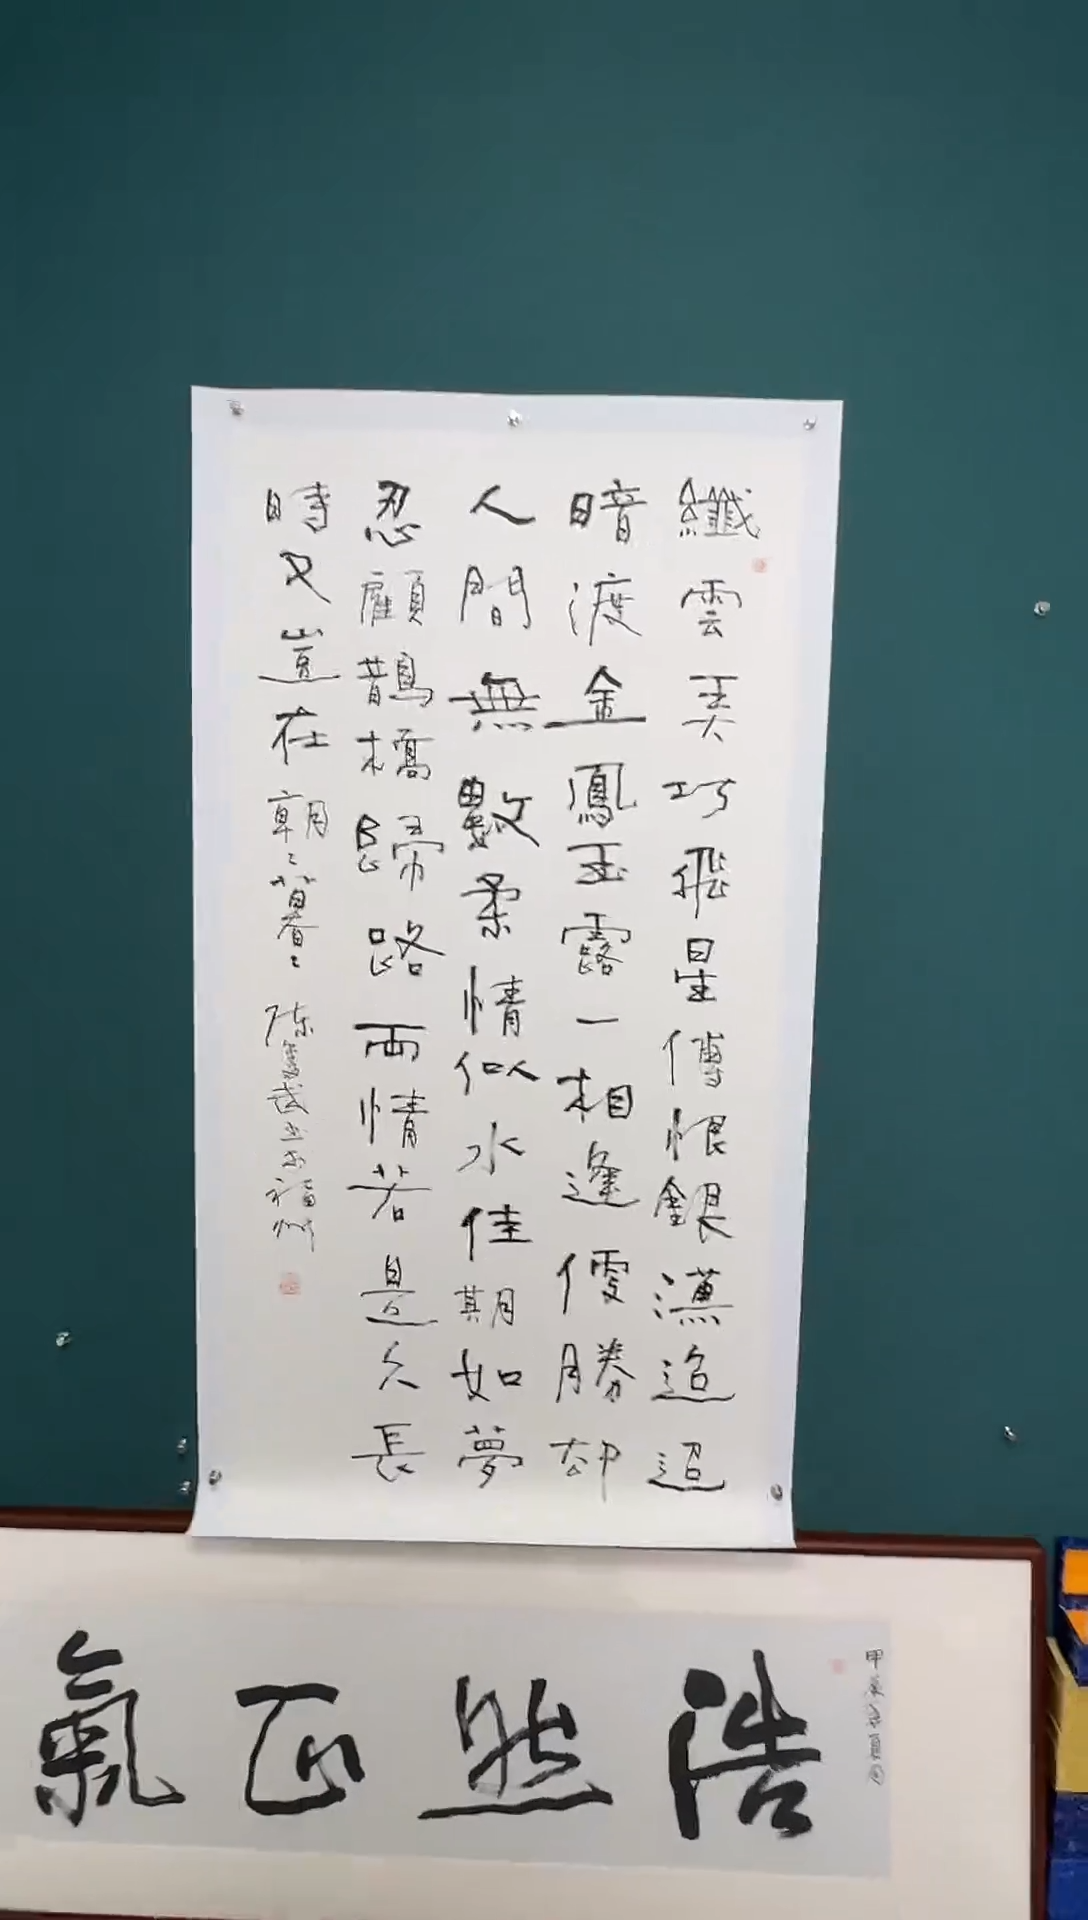 纖雲弄巧飛星傳恨銀漢迢迢
暗渡金鳳玉露一相逢便勝却
人間無數柔情似水佳期如夢
忍顧鵲橋歸路兩情若是久長
時又豈在朝〻暮〻
福州
甲辰
浩然正氣